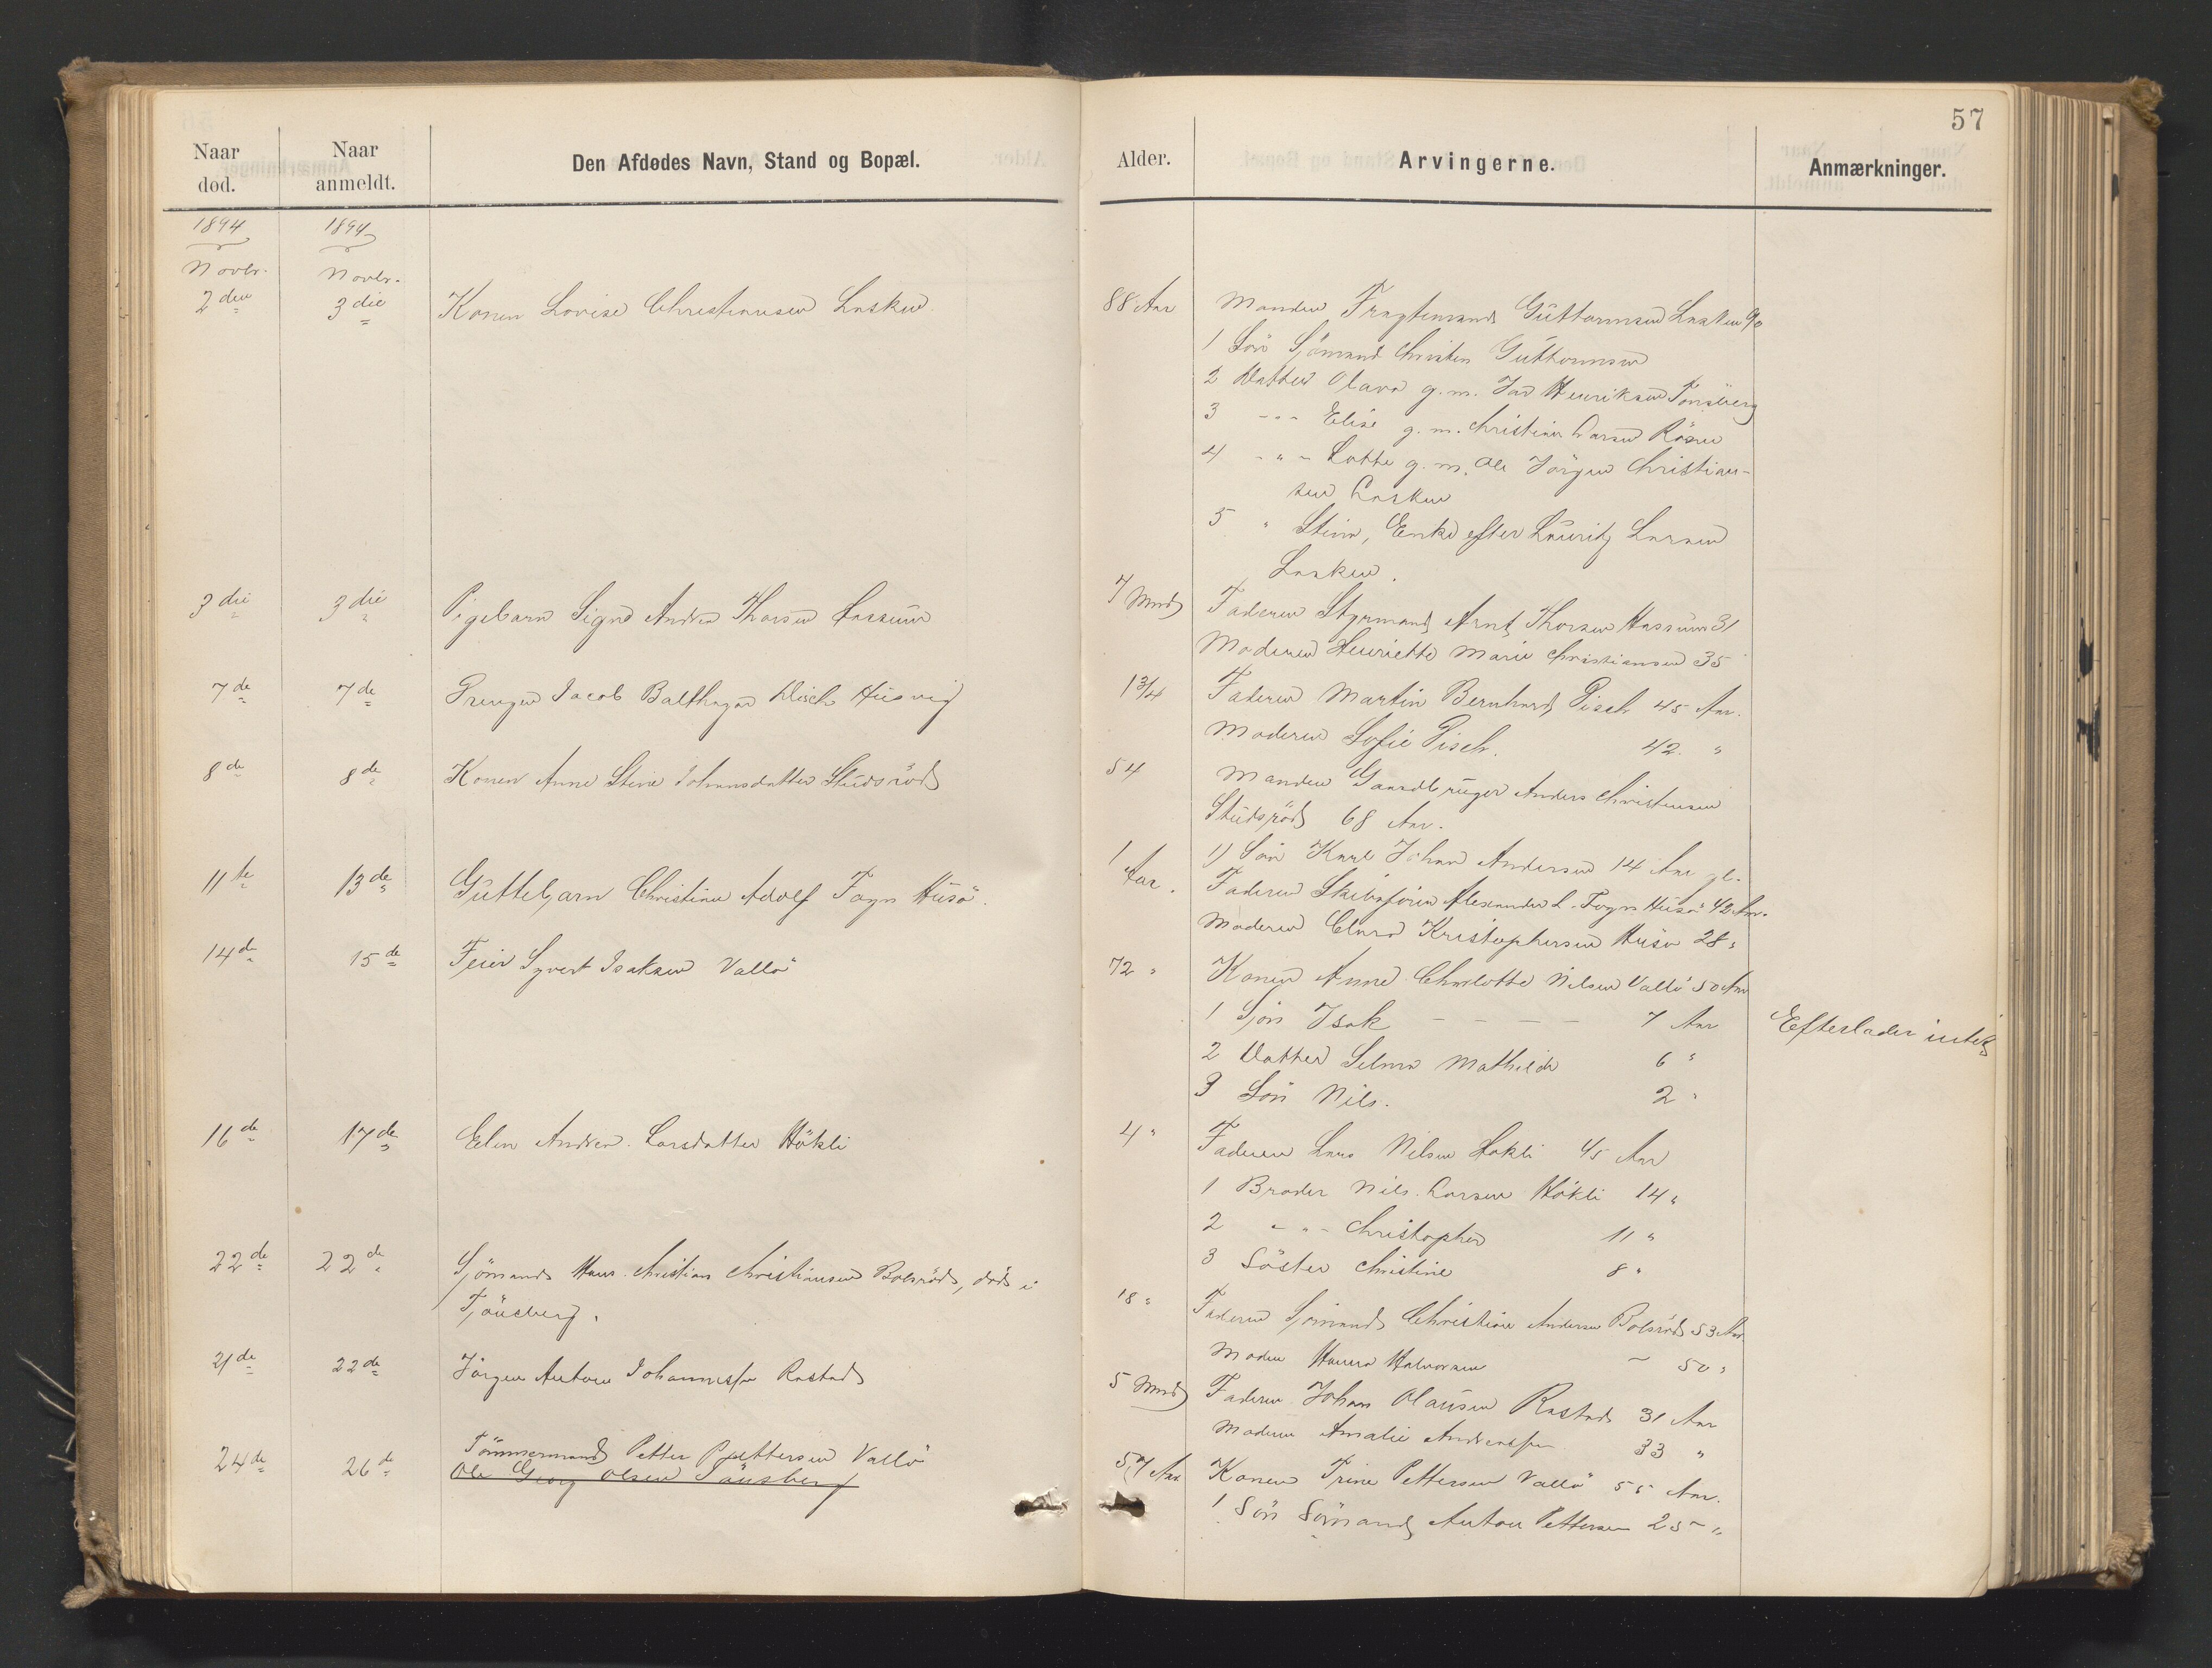 57
Naar død.
Naar anmeldt.
Den Afdødes Navn, Stand og Bopæl.
Alder.
Arvingerne.
Anmærkninger.
1894 1894
Novbr. Novbr.
2den 3die Konen Lovise Christiansen Lasken
88 Aar Manden Fragtemand Guttormsen Lasken 90
1 Søn Sjömand Christen Guttormsen
2 Datter Olava g.m. Henriksen Tønsberg
3 -"- Elise g.m. Christian Larsen
4 -"- Lotte g.m. Ole Jörgen Christian-
sen Lasken
5 " Stina, Enke efter Lauritz Larsen
Lasken.
3die 3die Pigebarn Signe Andrea Thorsen
7 Mnd Faderen Styrmand Arnt Thorsen 31
Moderen Henriette Marie Christiansen 35
7de 7de Drengen Jacob Balthazar Husvig
1 3/4 Faderen Martin Bernhard Pisch 45 Aar.
Moderen Sofie Pisch. 42 "
8de 8de Konen Anne Stine Johansdatter
54 Manden Gaardbruger Anders Christensen
68 Aar.
1) Søn Karl Johan Andersen 14 Aar gl.
11te 13de Guttebarn Christian Adolf Fayn Husö.
1 Aar. Faderen Skibsförer Alexander L. Fayn Husö 42 Aar.
Moderen Clara Kristophersen Husö 28 "
14de 15de Feier Syvert Isaksen Vallö
72 " Konen Anne Charlotte Nilsen Vallö 50 Aar
1 Sjön Isak - - - - 7 Aar
Efterlader intet
2 Datter Selma Mathilde 6 "
3 Sön Nils. 2 "
16de 17de Elen Andrea Larsdatter Hökli
4 " Faderen Lars Nilsen Hökli 45 Aar
1 Broder Nils Larsen Hökli 14 "
2 -"- Christopher 11 "
3 Söster Christine 8 "
22de 22de Sjömand Hans Christian Christiansen Bolsröd, död i
Tjönsberg.
18 " Faderen Sjömand Christian Andersen Bolsröd 53 Aar
Moder Hanna Halvorsen - 50 "
21de 22de Jörgen Anton Johannessen Rastad
5 Mnd Faderen Johan Olausen Rastad 31 Aar
Moderen Amalie Andreassen 33 "
24de 26de Tömmermand Petter Pettersen Vallö
Ole Georg Olsen Tönsberg
57 Aar Konen Trine Pettersen Vallö 55 Aar.
1 Sön Sömand Anton Pettersen 25 "